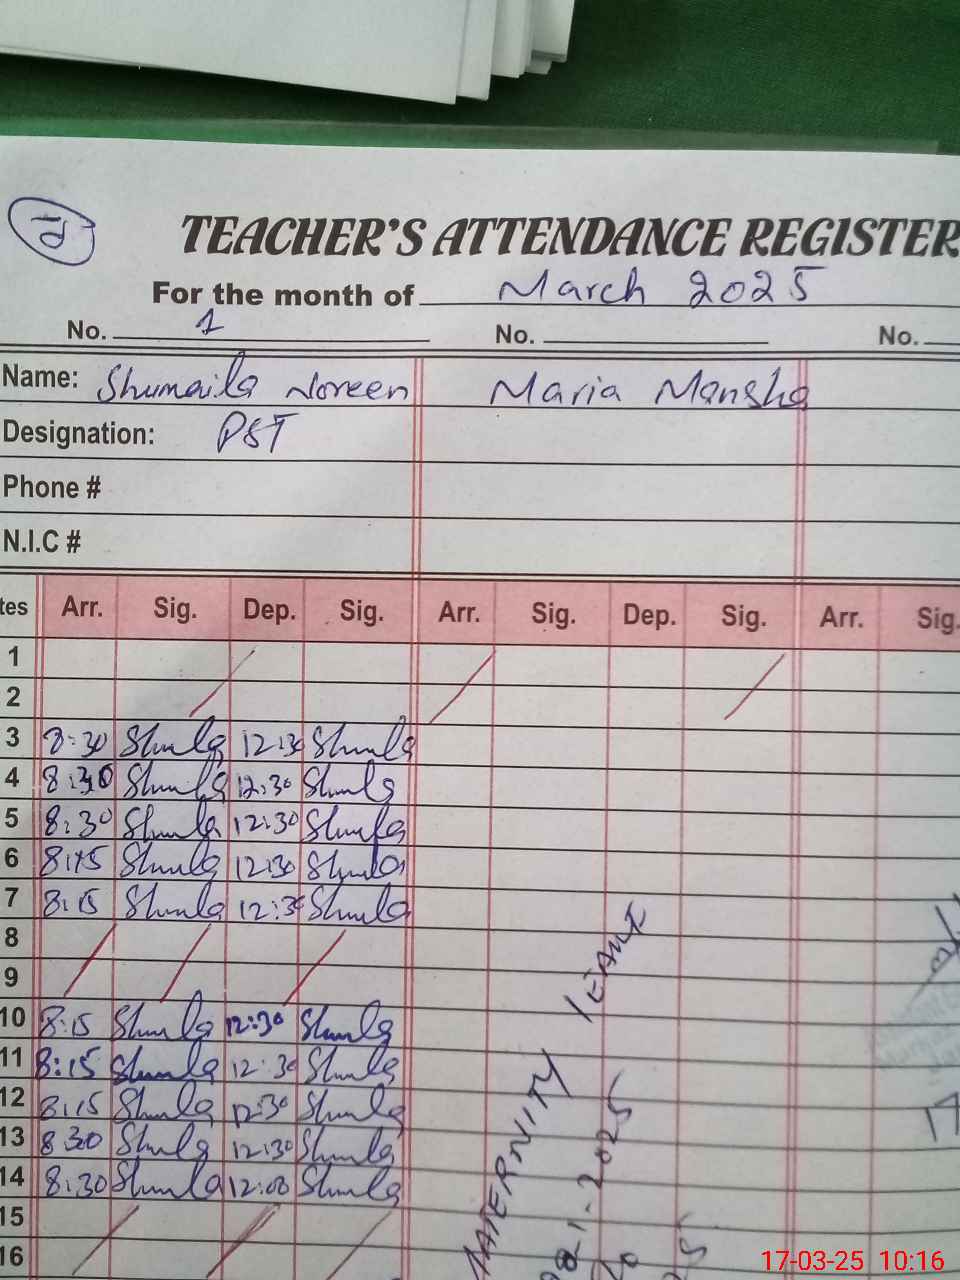 2
TEACHER'S ATTENDANCE REGISTER
For the month of March 2025
No. 1 No. No.
Name: Shumaila Noreen Maria Mansha
Designation: PST
Phone #
N.I.C #
tes Arr. Sig. Dep. Sig. Arr. Sig. Dep. Sig. Arr. Sig.
1
2
3 8:30 Shmla 12:30 Shmla
4 8:30 Shmla 12:30 Shmla
5 8:30 Shmla 12:30 Shmla
6 8:15 Shmla 12:30 Shmla
7 8:15 Shmla 12:30 Shmla
8
9
10 8:15 Shmla 12:30 Shmla
11 8:15 Shmla 12:30 Shmla
12 8:15 Shmla 12:30 Shmla
13 8 30 Shmla 12:30 Shmla
14 8:30 Shmla 12:00 Shmla
15
16
MATERNITY
17
17-03-25 10:16